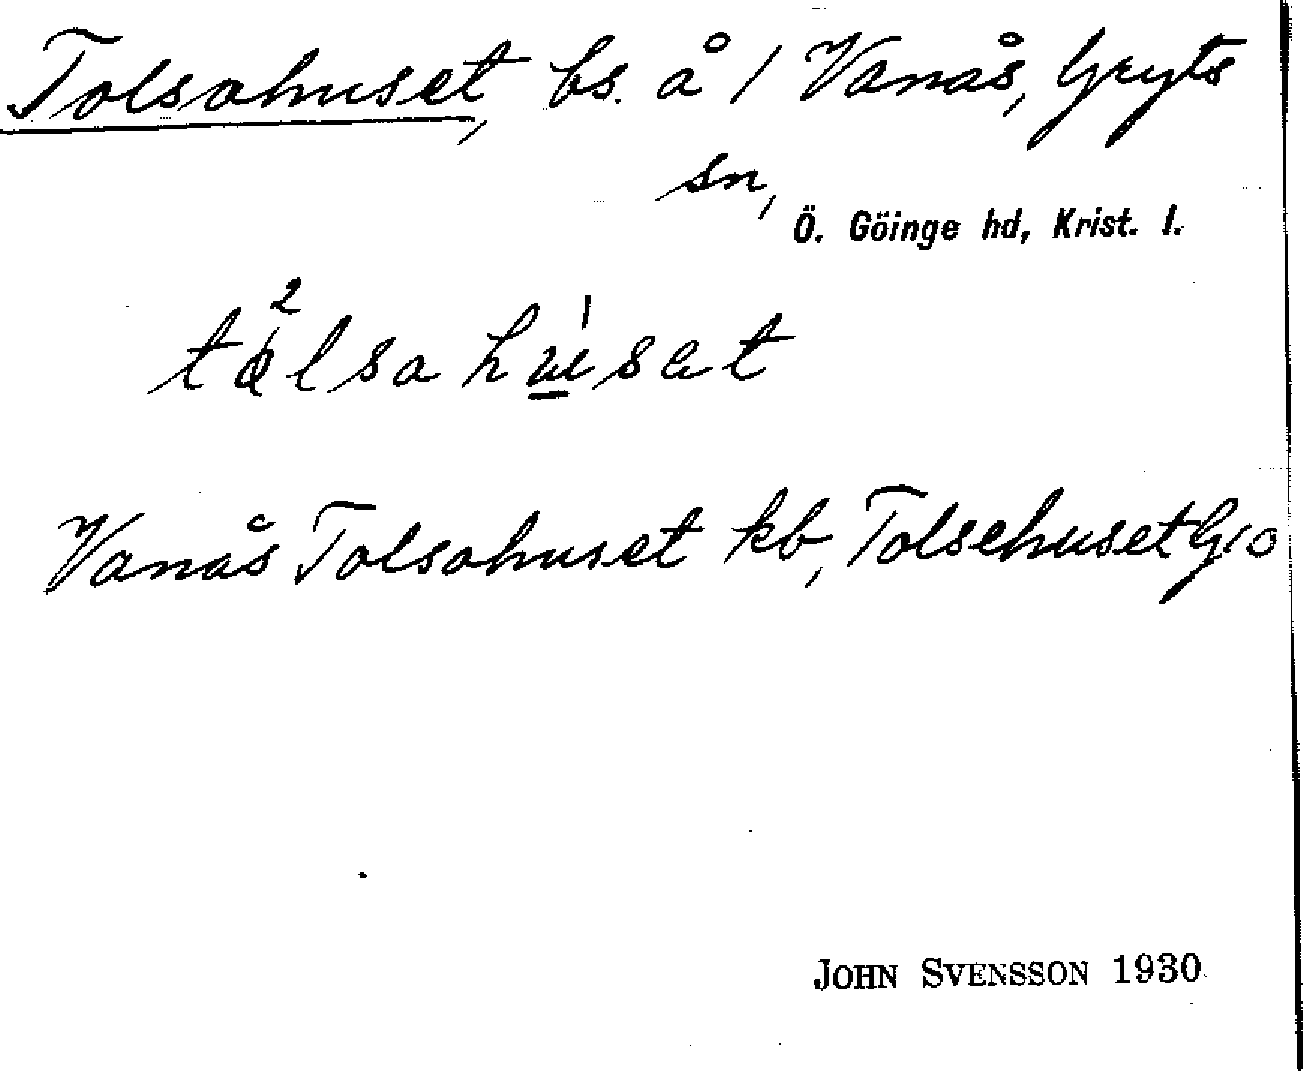 Tolsahuset, bs. å / Vanås, Gryts
sn,
Ö. Göinge hd, Krist. l.
Vanås Tolsahuset kb, Tolsehuset
JOHN SVENSSON 1930